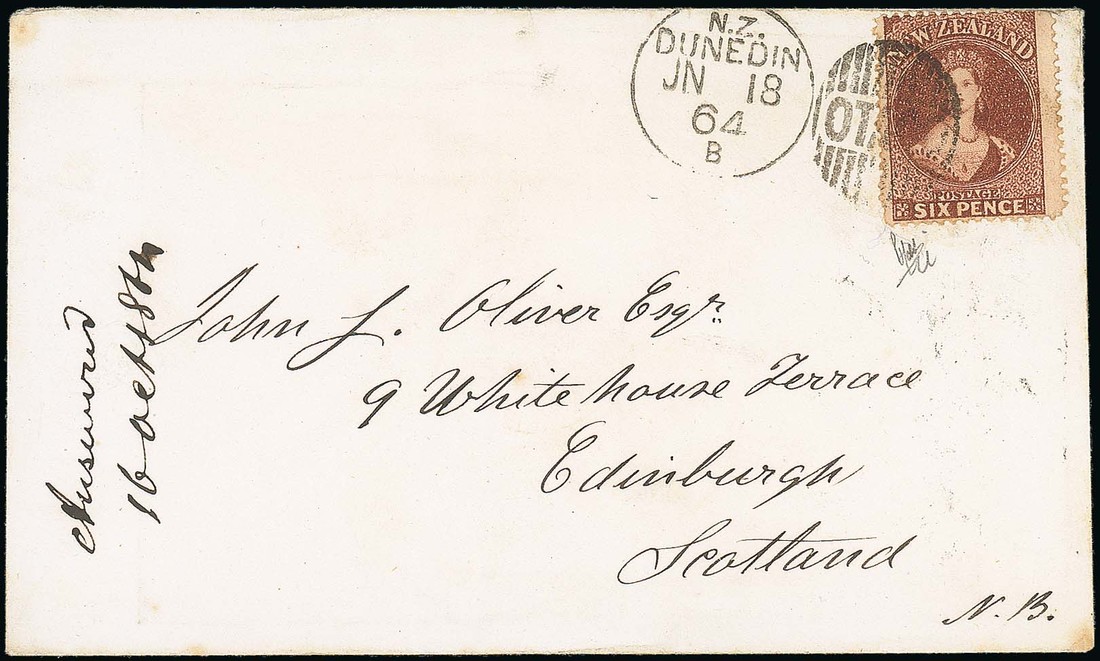 N.Z.
DUNEDIN
JN 18
64
B
OTA
NEW ZEALAND
POSTAGE
SIX PENCE
John L. Oliver Esqr.
9 White house Terrace
Edinburgh
Scotland
N.B.
Answered
16 Oct